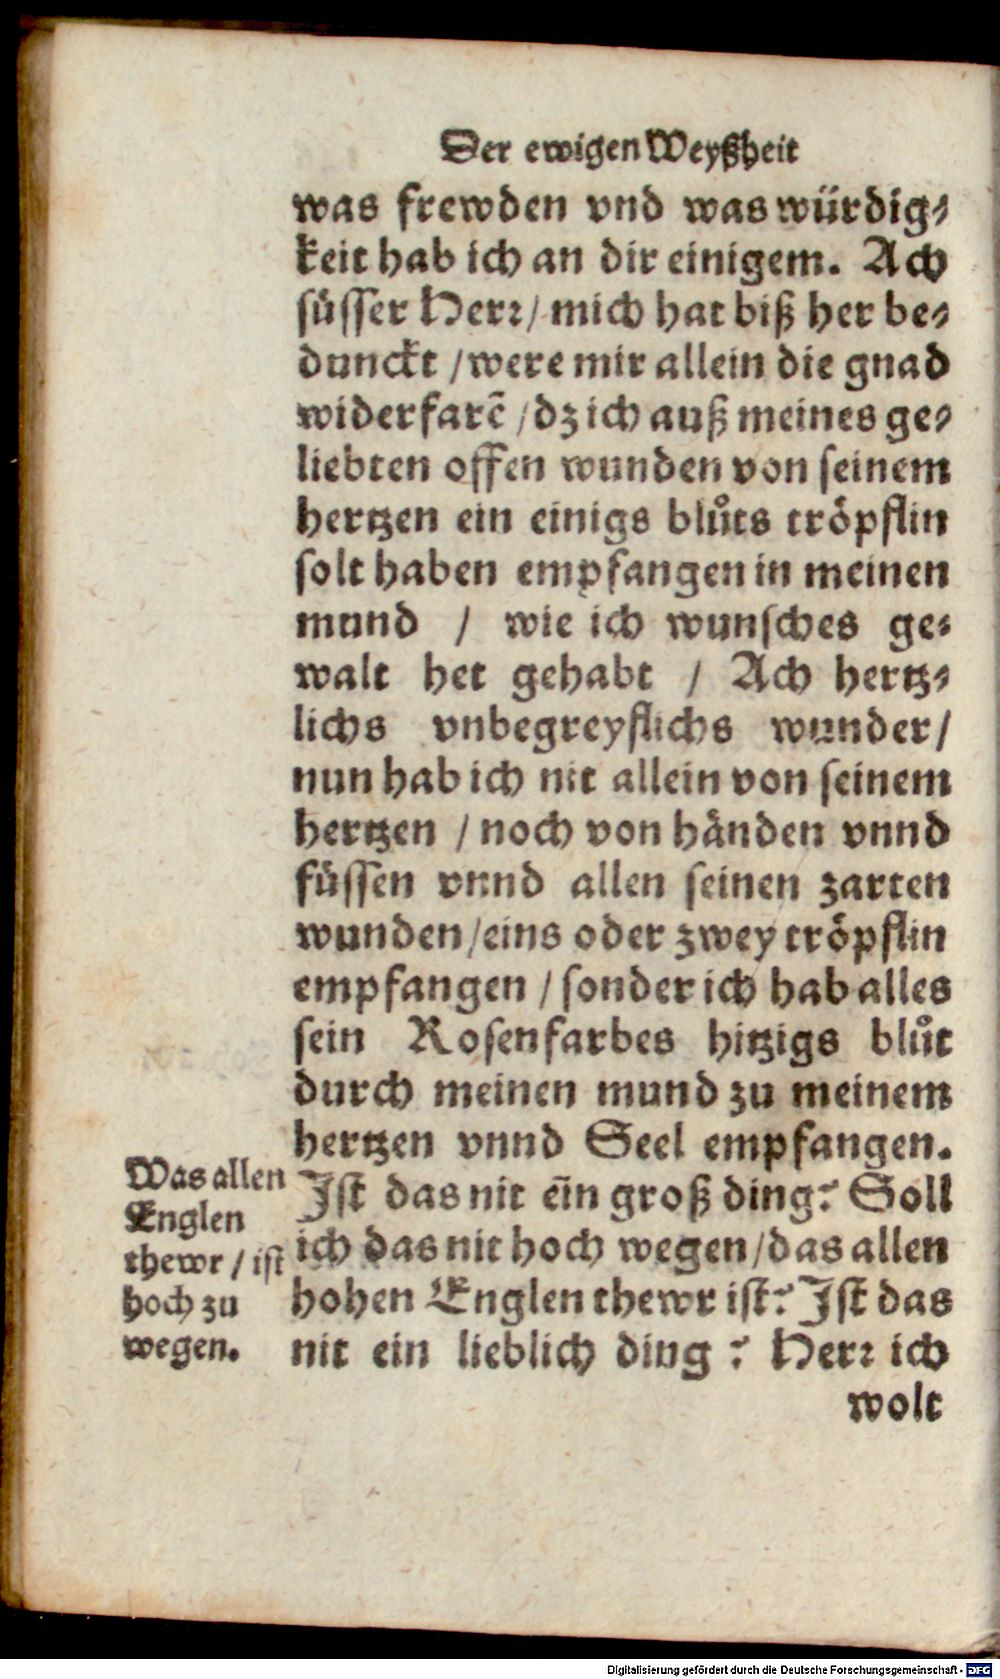 Der ewigen Weyßheit
was frewden vnd was würdig⸗
keit hab ich an dir einigem. Ach
süsser Herr/ mich hat biß her be⸗
dunckt / were mir allein die gnad
widerfarẽ / dz ich auß meines ge⸗
liebten offen wunden von seinem
hertzen ein einigs blůts tröpflin
solt haben empfangen in meinen
mund / wie ich wunsches ge⸗
walt het gehabt / Ach hertz⸗
lichs vnbegreyflichs wunder/
nun hab ich nit allein von seinem
hertzen / noch von händen vnnd
füssen vnnd allen seinen zarten
wunden/eins oder zwey tröpflin
empfangen / sonder ich hab alles
sein Rosenfarbes hitzigs blůt
durch meinen mund zu meinem
hertzen vnnd Seel empfangen.
Ist das nit ein groß ding? Soll
ich das nit hoch wegen/das allen
hohen Englen thewr ist? Ist das
nit ein lieblich ding? Herr ich
wolt
Was allen
Englen
thewr / ist
hoch zu
wegen.
Digitalisierung gefördert durch die Deutsche Forschungsgemeinschaft - DFG